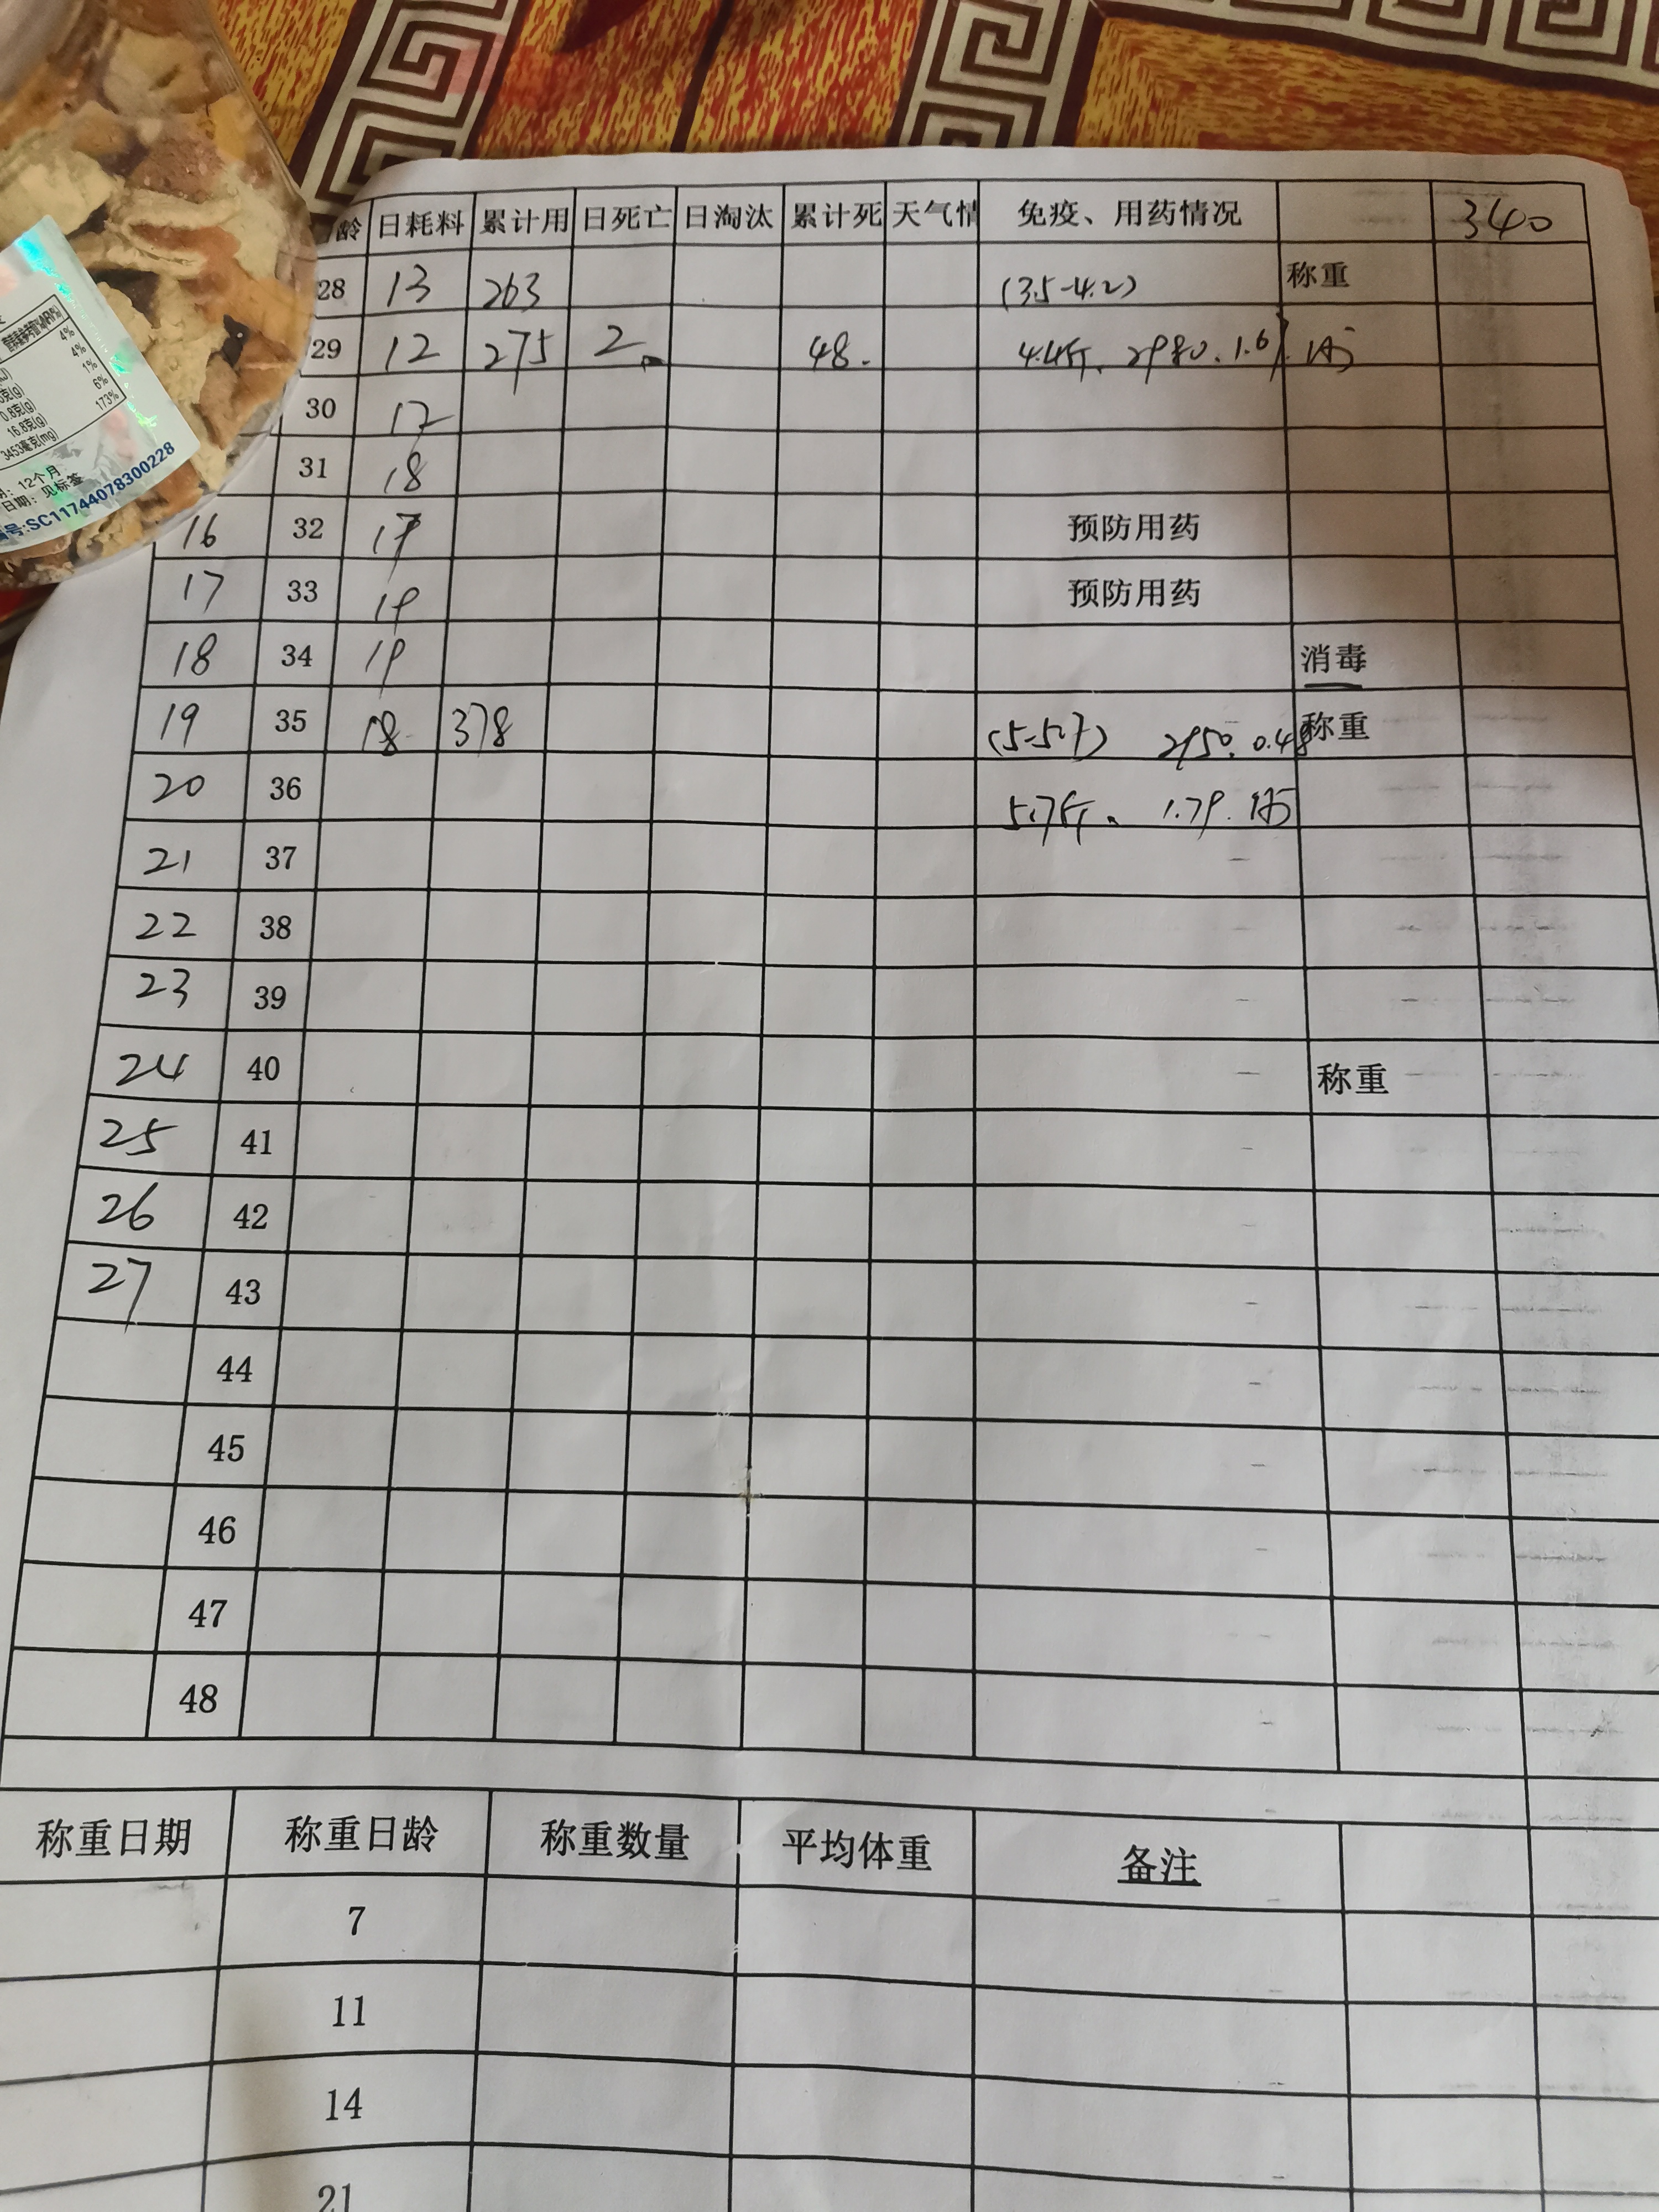 龄 日耗料 累计用 日死亡 日淘汰 累计死 天气情 免疫、用药情况 340
28 13 263 (3.5-4.2) 称重
29 12 275 2 48. 4.4斤、2980、1.67.
30 17
31 18
16 32 17 预防用药
17 33 19 预防用药
18 34 19 消毒
19 35 18 378 (5-5.7) 2950. 0.48 称重
20 36 5.7斤、 1.79.
21 37
22 38
23 39
24 40 称重
25 41
26 42
27 43
44
45
46
47
48
称重日期 称重日龄 称重数量 平均体重 备注
7
11
14
21
营养素参考值%或NRV%
4%
4%
1%
6%
173%
克(g)
0.8克(g)
16.8克(g)
3453毫克(mg)
期：12个月
日期：见标签
编号:SC11744078300228